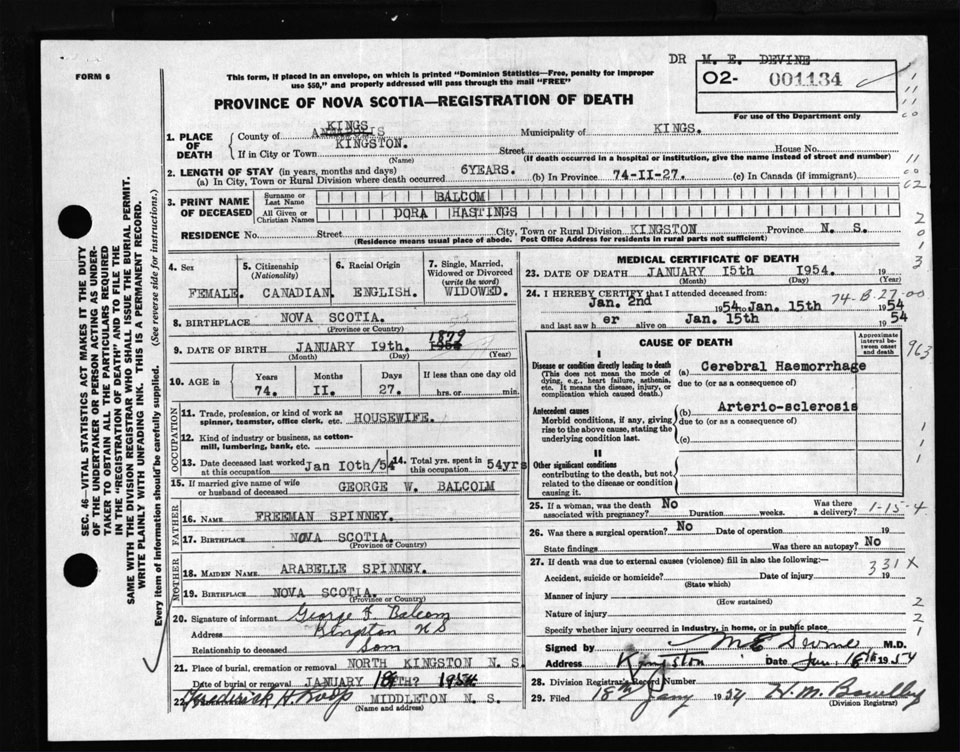 DR M. E. DEVINE
FORM 6
This form, if placed in an envelope, on which is printed "Dominion Statistics—Free, penalty for improper
use $50," and properly addressed will pass through the mail "FREE"
O2- 001134
PROVINCE OF NOVA SCOTIA—REGISTRATION OF DEATH
For use of the Department only
1. PLACE OF DEATH
County of KINGS ANNAPOLIS Municipality of KINGS.
If in City or Town KINGSTON. Street House No.
(Name) (If death occurred in a hospital or institution, give the name instead of street and number)
2. LENGTH OF STAY (in years, months and days)
(a) In City, Town or Rural Division where death occurred 6YEARS. (b) In Province 74-II-27. (c) In Canada (if immigrant)
3. PRINT NAME OF DECEASED
Surname or Last Name BALCOM
All Given or Christian Names DORA HASTINGS
RESIDENCE No. Street City, Town or Rural Division KINGSTON Province N. S.
(Residence means usual place of abode. Post Office Address for residents in rural parts not sufficient)
4. Sex
FEMALE.
5. Citizenship (Nationality)
CANADIAN.
6. Racial Origin
ENGLISH.
7. Single, Married, Widowed or Divorced (write the word)
WIDOWED.
8. BIRTHPLACE NOVA SCOTIA.
(Province or Country)
1879
9. DATE OF BIRTH JANUARY 19th.
(Month) (Day) (Year)
10. AGE in Years Months Days If less than one day old
74. II. 27. hrs. or min.
OCCUPATION
11. Trade, profession, or kind of work as spinner, teamster, office clerk, etc. HOUSEWIFE.
12. Kind of industry or business, as cotton-mill, lumbering, bank, etc.
13. Date deceased last worked at this occupation Jan 10th/54
14. Total yrs. spent in this occupation 54yrs
15. If married give name of wife or husband of deceased GEORGE W. BALCOLM
FATHER
16. NAME FREEMAN SPINNEY.
17. BIRTHPLACE NOVA SCOTIA.
(Province or Country)
MOTHER
18. MAIDEN NAME ARABELLE SPINNEY.
19. BIRTHPLACE NOVA SCOTIA.
(Province or Country)
20. Signature of informant George F Balcom
Address Kingston N S
Relationship to deceased Son
21. Place of burial, cremation or removal NORTH KINGSTON N. S.
Date of burial or removal JANUARY 18TH? 1954
22. Frederick H Roop MIDDLETON N. S.
(Name and address)
MEDICAL CERTIFICATE OF DEATH
23. DATE OF DEATH JANUARY 15th 1954. 19
(Month) (Day) (Year)
24. I HEREBY CERTIFY that I attended deceased from:
Jan. 2nd 1954 to Jan. 15th 1954
74-B-27-00
and last saw h er alive on Jan. 15th 1954
CAUSE OF DEATH
Approximate interval between onset and death
963
I
Disease or condition directly leading to death
(This does not mean the mode of dying, e.g., heart failure, asthenia, etc. It means the disease, injury, or complication which caused death.)
(a) Cerebral Haemorrhage
due to (or as a consequence of)
Antecedent causes
Morbid conditions, if any, giving rise to the above cause, stating the underlying condition last.
(b) Arterio-sclerosis
due to (or as a consequence of)
(c)
II
Other significant conditions
contributing to the death, but not related to the disease or condition causing it.
25. If a woman, was the death associated with pregnancy? No Duration weeks. Was there a delivery?
1-15-4
26. Was there a surgical operation? No Date of operation 19
State findings Was there an autopsy? No
27. If death was due to external causes (violence) fill in also the following:—
331X
Accident, suicide or homicide? Date of injury 19
(State which)
Manner of injury
(How sustained)
Nature of injury
Specify whether injury occurred in industry, in home, or in public place
Signed by M E Devine M.D.
Address Kingston Date Jan. 18th 1954
28. Division Registrar's Record Number
29. Filed 18th Jany 1954 H. M. Bowlby
(Division Registrar)
SEC. 46—VITAL STATISTICS ACT MAKES IT THE DUTY
OF THE UNDERTAKER OR PERSON ACTING AS UNDER-
TAKER TO OBTAIN ALL THE PARTICULARS REQUIRED
IN THE "REGISTRATION OF DEATH" AND TO FILE THE
SAME WITH THE DIVISION REGISTRAR WHO SHALL ISSUE THE BURIAL PERMIT.
WRITE PLAINLY WITH UNFADING INK. THIS IS A PERMANENT RECORD.
Every item of information should be carefully supplied. (See reverse side for instructions.)